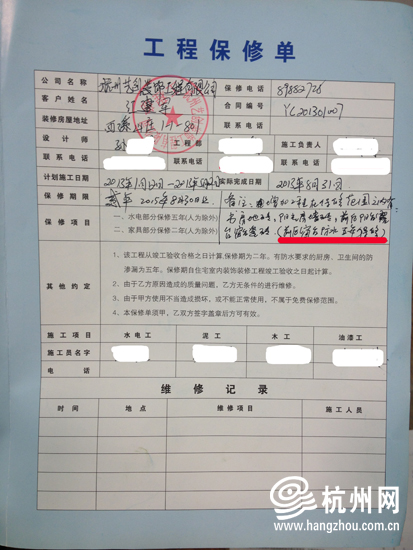 工程保修单
公司名称
保修电话 89882726
客户姓名
合同编号 YC201301007
装修房屋地址
设计师 工程部 施工负责人
联系电话 联系电话 联系电话
计划施工日期 2013年1月12日 实际完成日期 2013年8月31日
保修期限 贰年 2015年8月30日止
备注:
保修项目
一、水电部分保修五年(人为除外)
二、家具部分保修二年(人为除外)
其他约定
1、该工程从竣工验收合格之日计算,保修期为二年。有防水要求的厨房、卫生间的防
渗漏为五年。保修期自住宅室内装饰装修工程竣工验收之日起计算。
2、由于乙方原因造成的质量问题,乙方无条件的进行维修。
3、由于甲方使用不当造成损坏,或不能正常使用,不属于免费保修范围。
4、本保修单须甲,乙双方签字盖章后方可有效。
施工项目 水电工 泥工 木工 油漆工
施工员名字
电话
维修记录
时间 地点 维修项目 施工人员
杭州网
www.hangzhou.com.cn